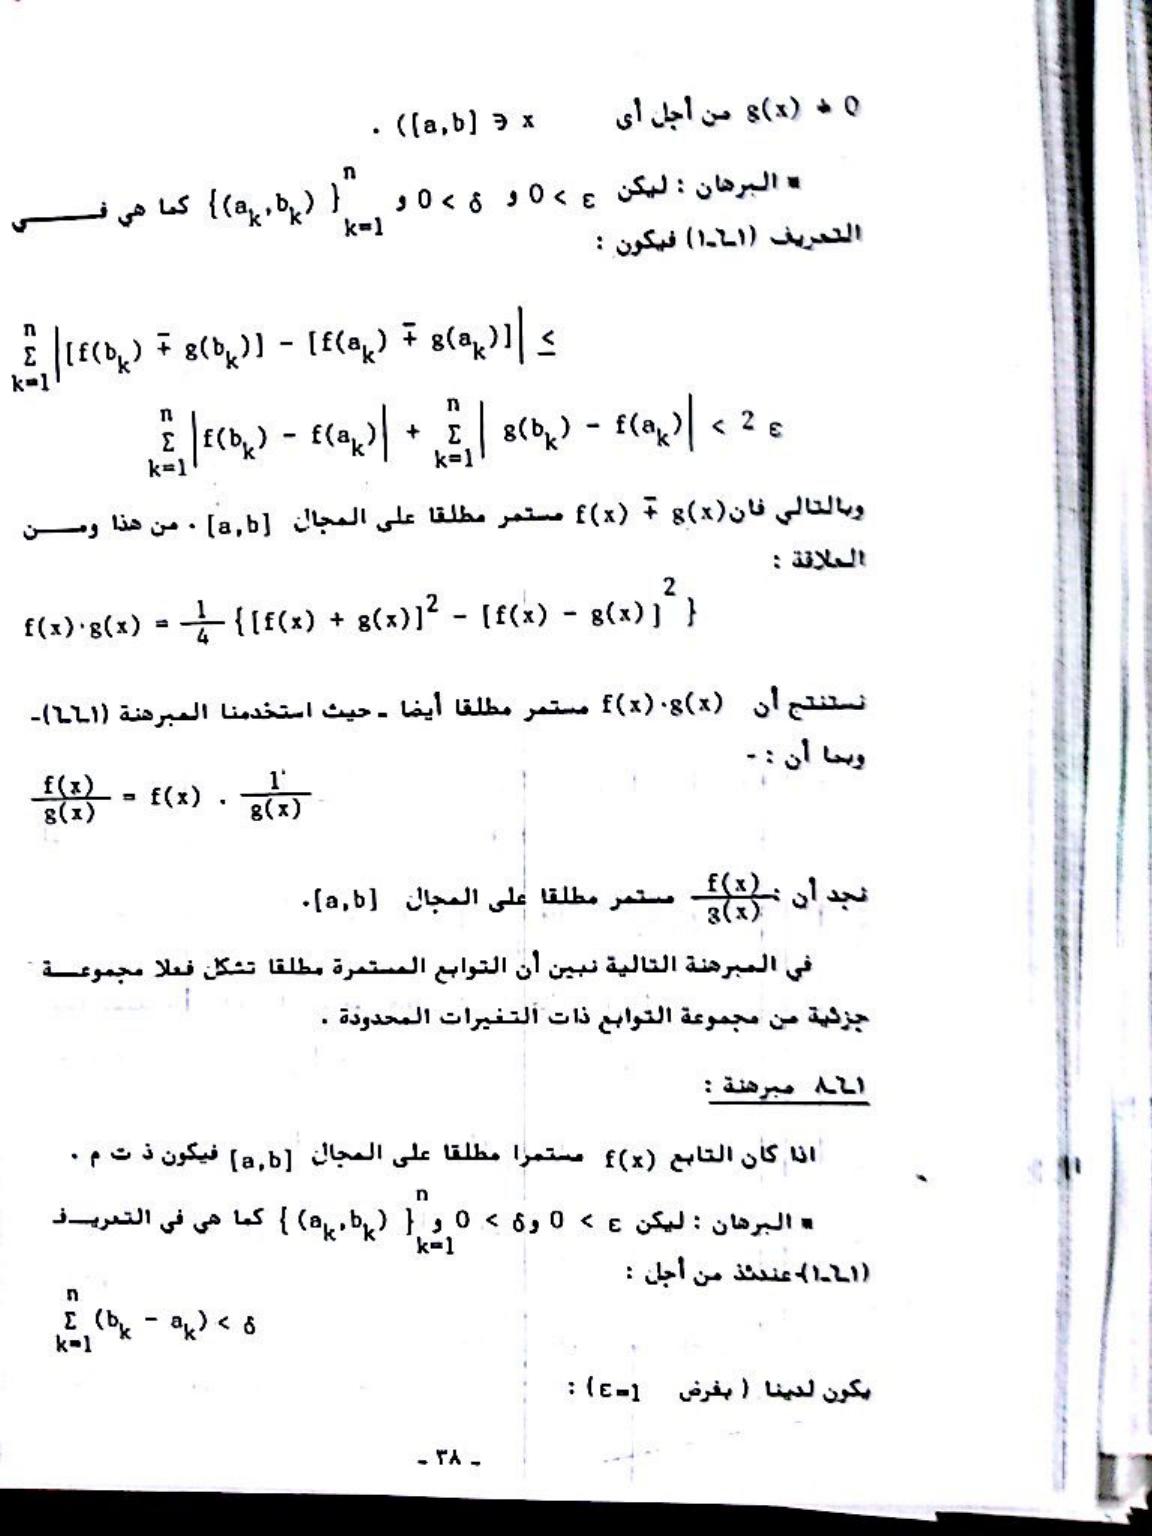 g(x) ≠ 0 من أجل أى x ∈ [a,b]) .
■ البرهان : ليكن ε > 0 و δ > 0 و {(a_k,b_k)}_{k=1}^{n} كما هي فـــي
التعريف (١ـ٦ـ١) فيكون :
\sum_{k=1}^{n} |[f(b_k) ∓ g(b_k)] - [f(a_k) ∓ g(a_k)]| ≤
\sum_{k=1}^{n} |f(b_k) - f(a_k)| + \sum_{k=1}^{n} | g(b_k) - f(a_k)| < 2 ε
وبالتالي فان f(x) ∓ g(x) مستمر مطلقا على المجال [a,b] . من هذا ومـــن
العلاقة :
f(x)·g(x) = \frac{1}{4} {[f(x) + g(x)]^2 - [f(x) - g(x)]^2}
نستنتج أن f(x)·g(x) مستمر مطلقا أيضا ـ حيث استخدمنا المبرهنة (١ـ٦ـ٦)-
وبما أن : -
\frac{f(x)}{g(x)} = f(x) . \frac{1}{g(x)}
نجد أن : \frac{f(x)}{g(x)} مستمر مطلقا على المجال [a,b].
في المبرهنة التالية نبين أن التوابع المستمرة مطلقا تشكل فعلا مجموعـــة
جزئية من مجموعة التوابع ذات التغيرات المحدودة .
١ـ٦ـ٨ مبرهنة :
اذا كان التابع f(x) مستمرا مطلقا على المجال [a,b] فيكون ذ ت م .
■ البرهان : ليكن ε > 0 و δ > 0 و {(a_k,b_k)}_{k=1}^{n} كما هي في التعريـــف
(١ـ٦ـ١) عندئذ من أجل :
\sum_{k=1}^{n} (b_k - a_k) < δ
يكون لدينا ( بفرض ε=1) :
- ٣٨ -